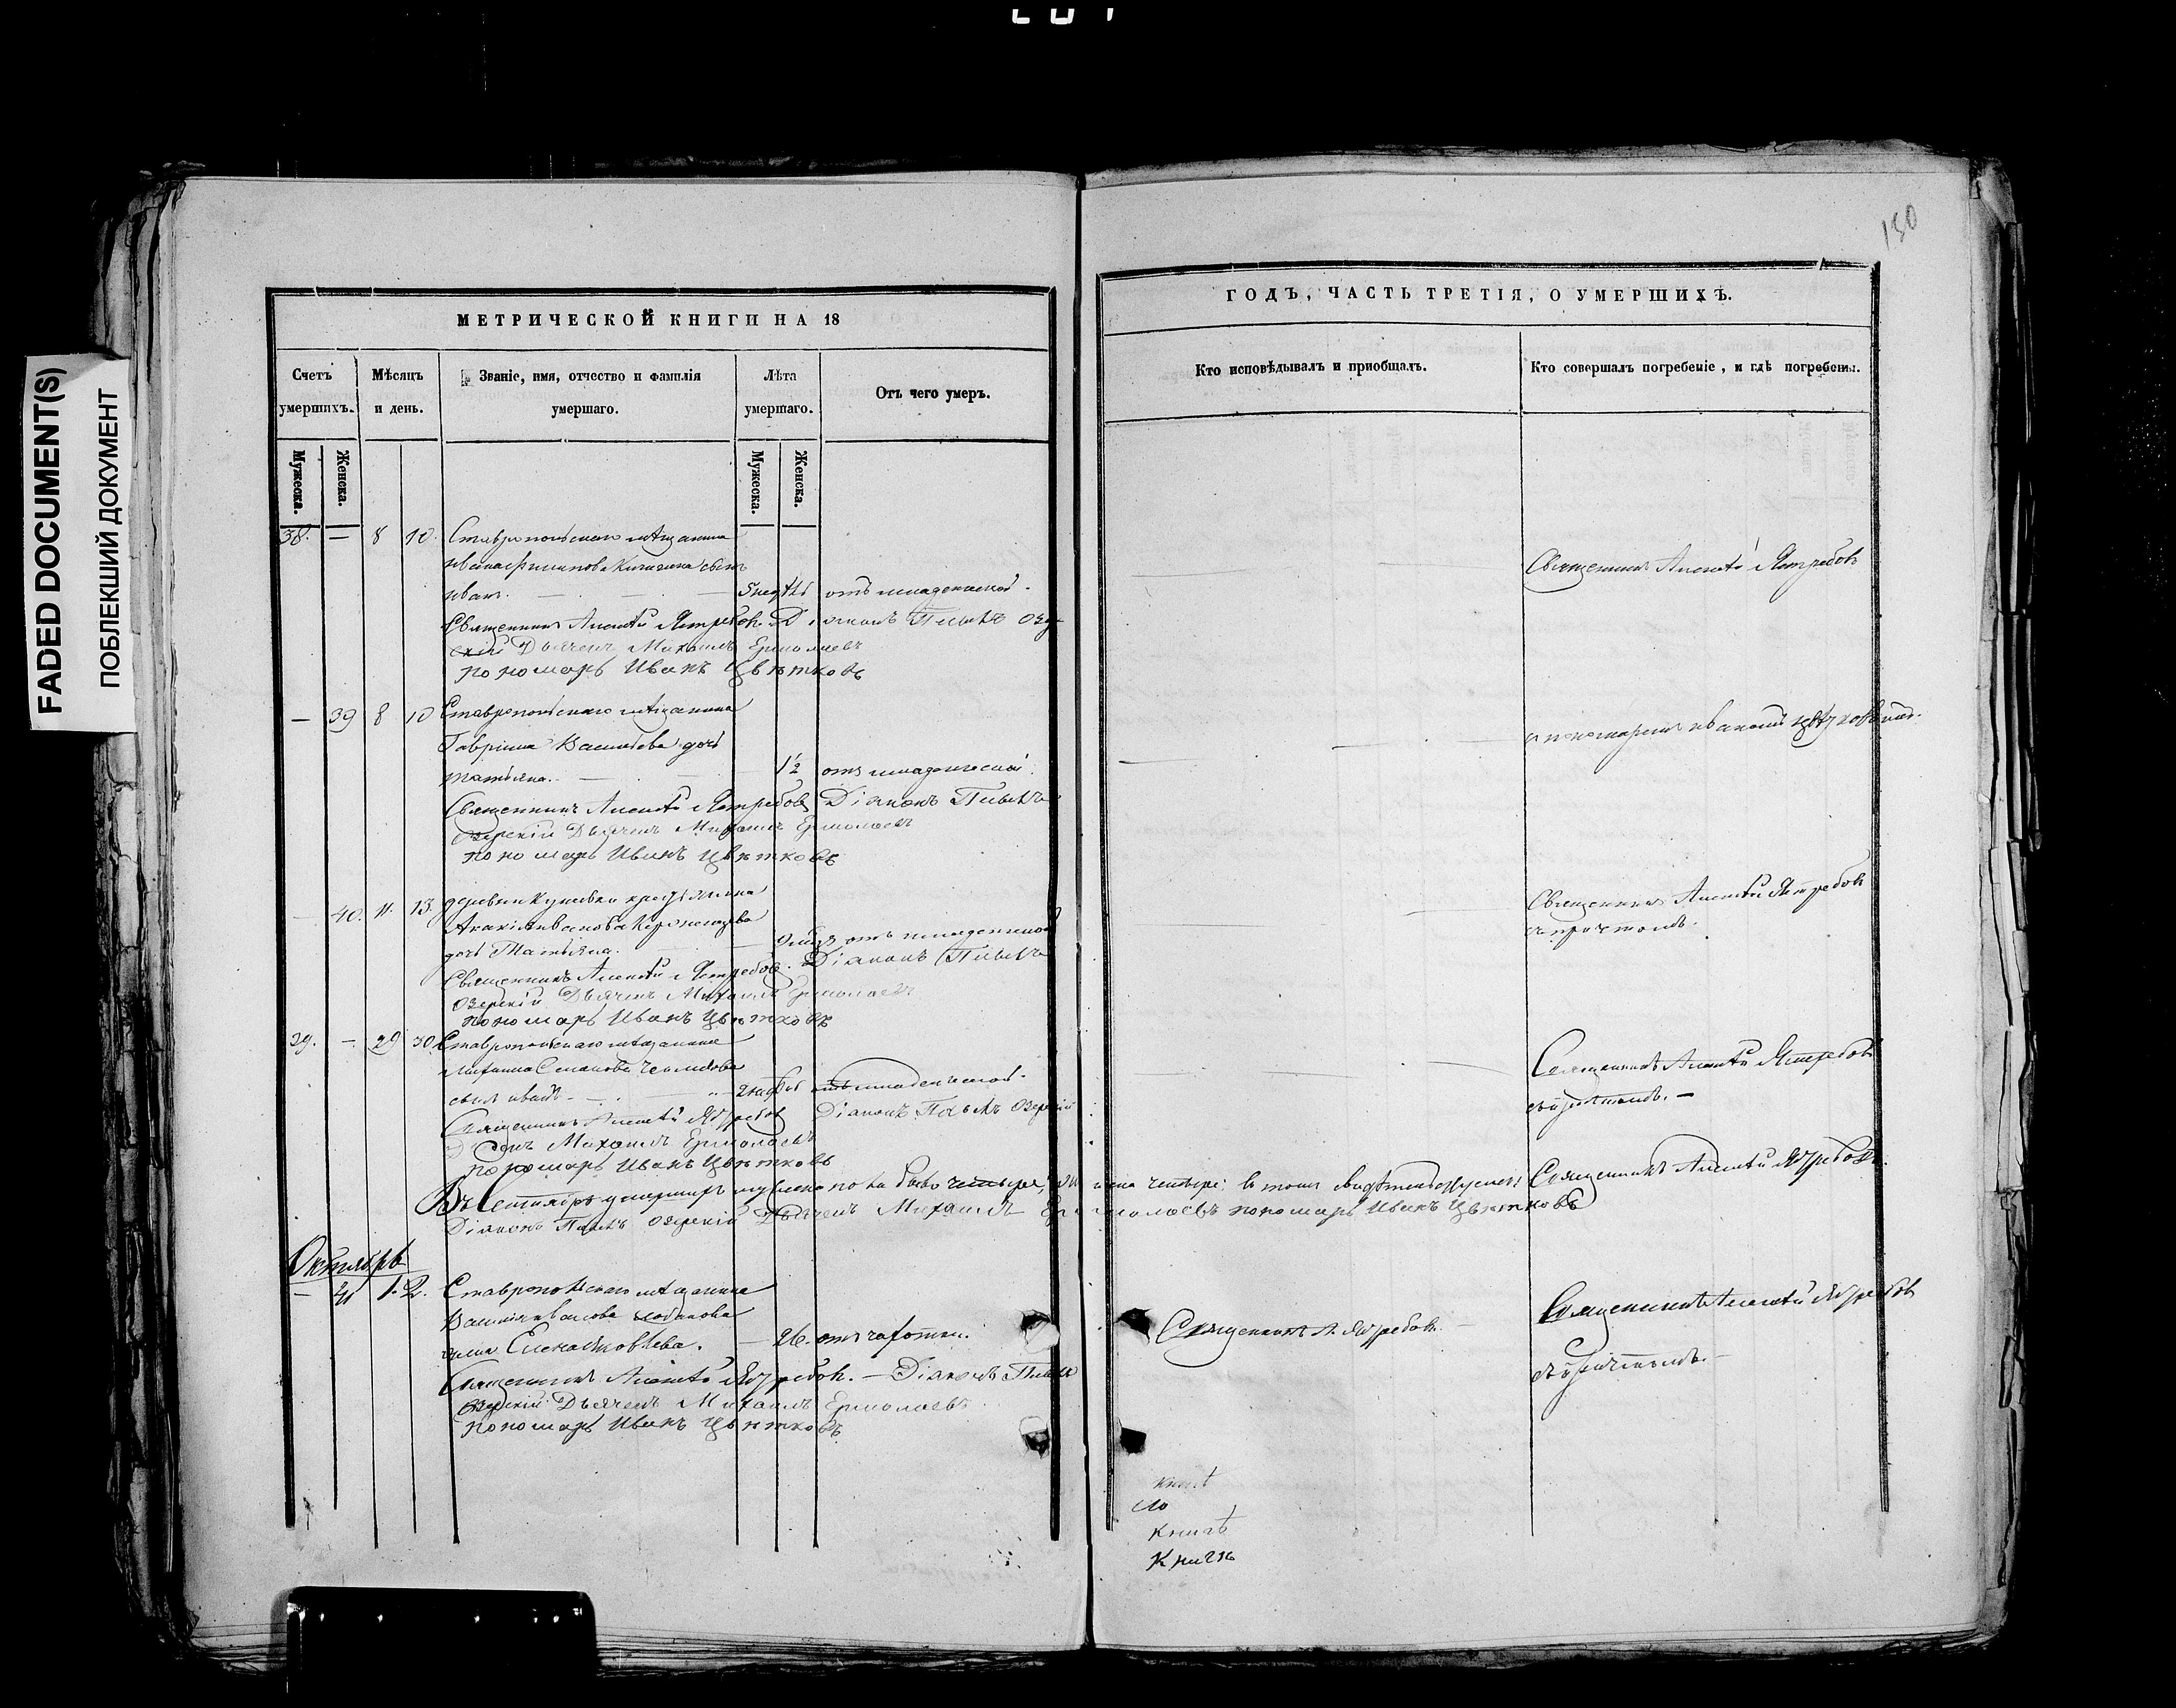 FADED DOCUMENT(S)
ПОБЛЕКШИЙ ДОКУМЕНТ
150
МЕТРИЧЕСКОЙ КНИГИ НА 18
ГОДЪ, ЧАСТЬ ТРЕТІЯ, О УМЕРШИХЪ.
Счетъ умершихъ.
Мѣсяцъ и день.
Званіе, имя, отчество и фамилія умершаго.
Лѣта умершаго.
Отъ чего умеръ.
Кто исповѣдывалъ и пріобщалъ.
Кто совершалъ погребеніе, и гдѣ погребены.
Мужеска.
Женска.
Мужеска.
Женска.
38. — 8 10. Ставропольскаго мѣщанина
Ивана Филипова сынъ
Иванъ. — — — отъ младенческой.
Священникъ Алексѣй Ястребовъ
Священникъ Алексѣй Ястребовъ. Діаконъ Павелъ Озер-
скій Дьячекъ Михаилъ Ермолаевъ
пономарь Иванъ Цвѣтковъ
— 39 8 10 Ставропольскаго мѣщанина
Гавріила Васильева дочь
Татьяна. — — 1½ отъ младенческой.
съ пономаремъ Иваномъ Цвѣтковымъ.
Священникъ Алексѣй Ястребовъ Діаконъ Павелъ
Озерскій Дьячекъ Михаилъ Ермолаевъ
пономарь Иванъ Цвѣтковъ
40. 11. 13. деревни крестьянина
Иванова
дочь Татьяна. — отъ младенческой
Священникъ Алексѣй Ястребовъ
съ причтомъ.
Священникъ Алексѣй Ястребовъ. Діаконъ Павелъ
Озерскій Дьячекъ Михаилъ Ермолаевъ
пономарь Иванъ Цвѣтковъ
39. — 29 30. Ставропольскаго мѣщанина
Михаила
сынъ Иванъ — отъ младенческой.
Священникъ Алексѣй Ястребовъ
съ причтомъ. —
Священникъ Алексѣй Ястребовъ Діаконъ Павелъ Озерскій
Михаилъ Ермолаевъ
пономарь Иванъ Цвѣтковъ
Въ Сентябрѣ умершихъ мужеска пола было четыре, женска четыре; въ томъ свидѣтельствуемъ: Священникъ Алексѣй Ястребовъ.
Діаконъ Павелъ Озерскій Дьячекъ Михаилъ Ермолаевъ пономарь Иванъ Цвѣтковъ
Октябрь
— 41 1. 2. Ставропольскаго мѣщанина
жена Елена — 26. отъ чахотки.
Священникъ А. Ястребовъ. —
Священникъ Алексѣй Ястребовъ
съ причтомъ. —
Священникъ Алексѣй Ястребовъ. — Діаконъ Павелъ
Озерскій Дьячекъ Михаилъ Ермолаевъ
пономарь Иванъ Цвѣтковъ
Книгѣ
Книгѣ